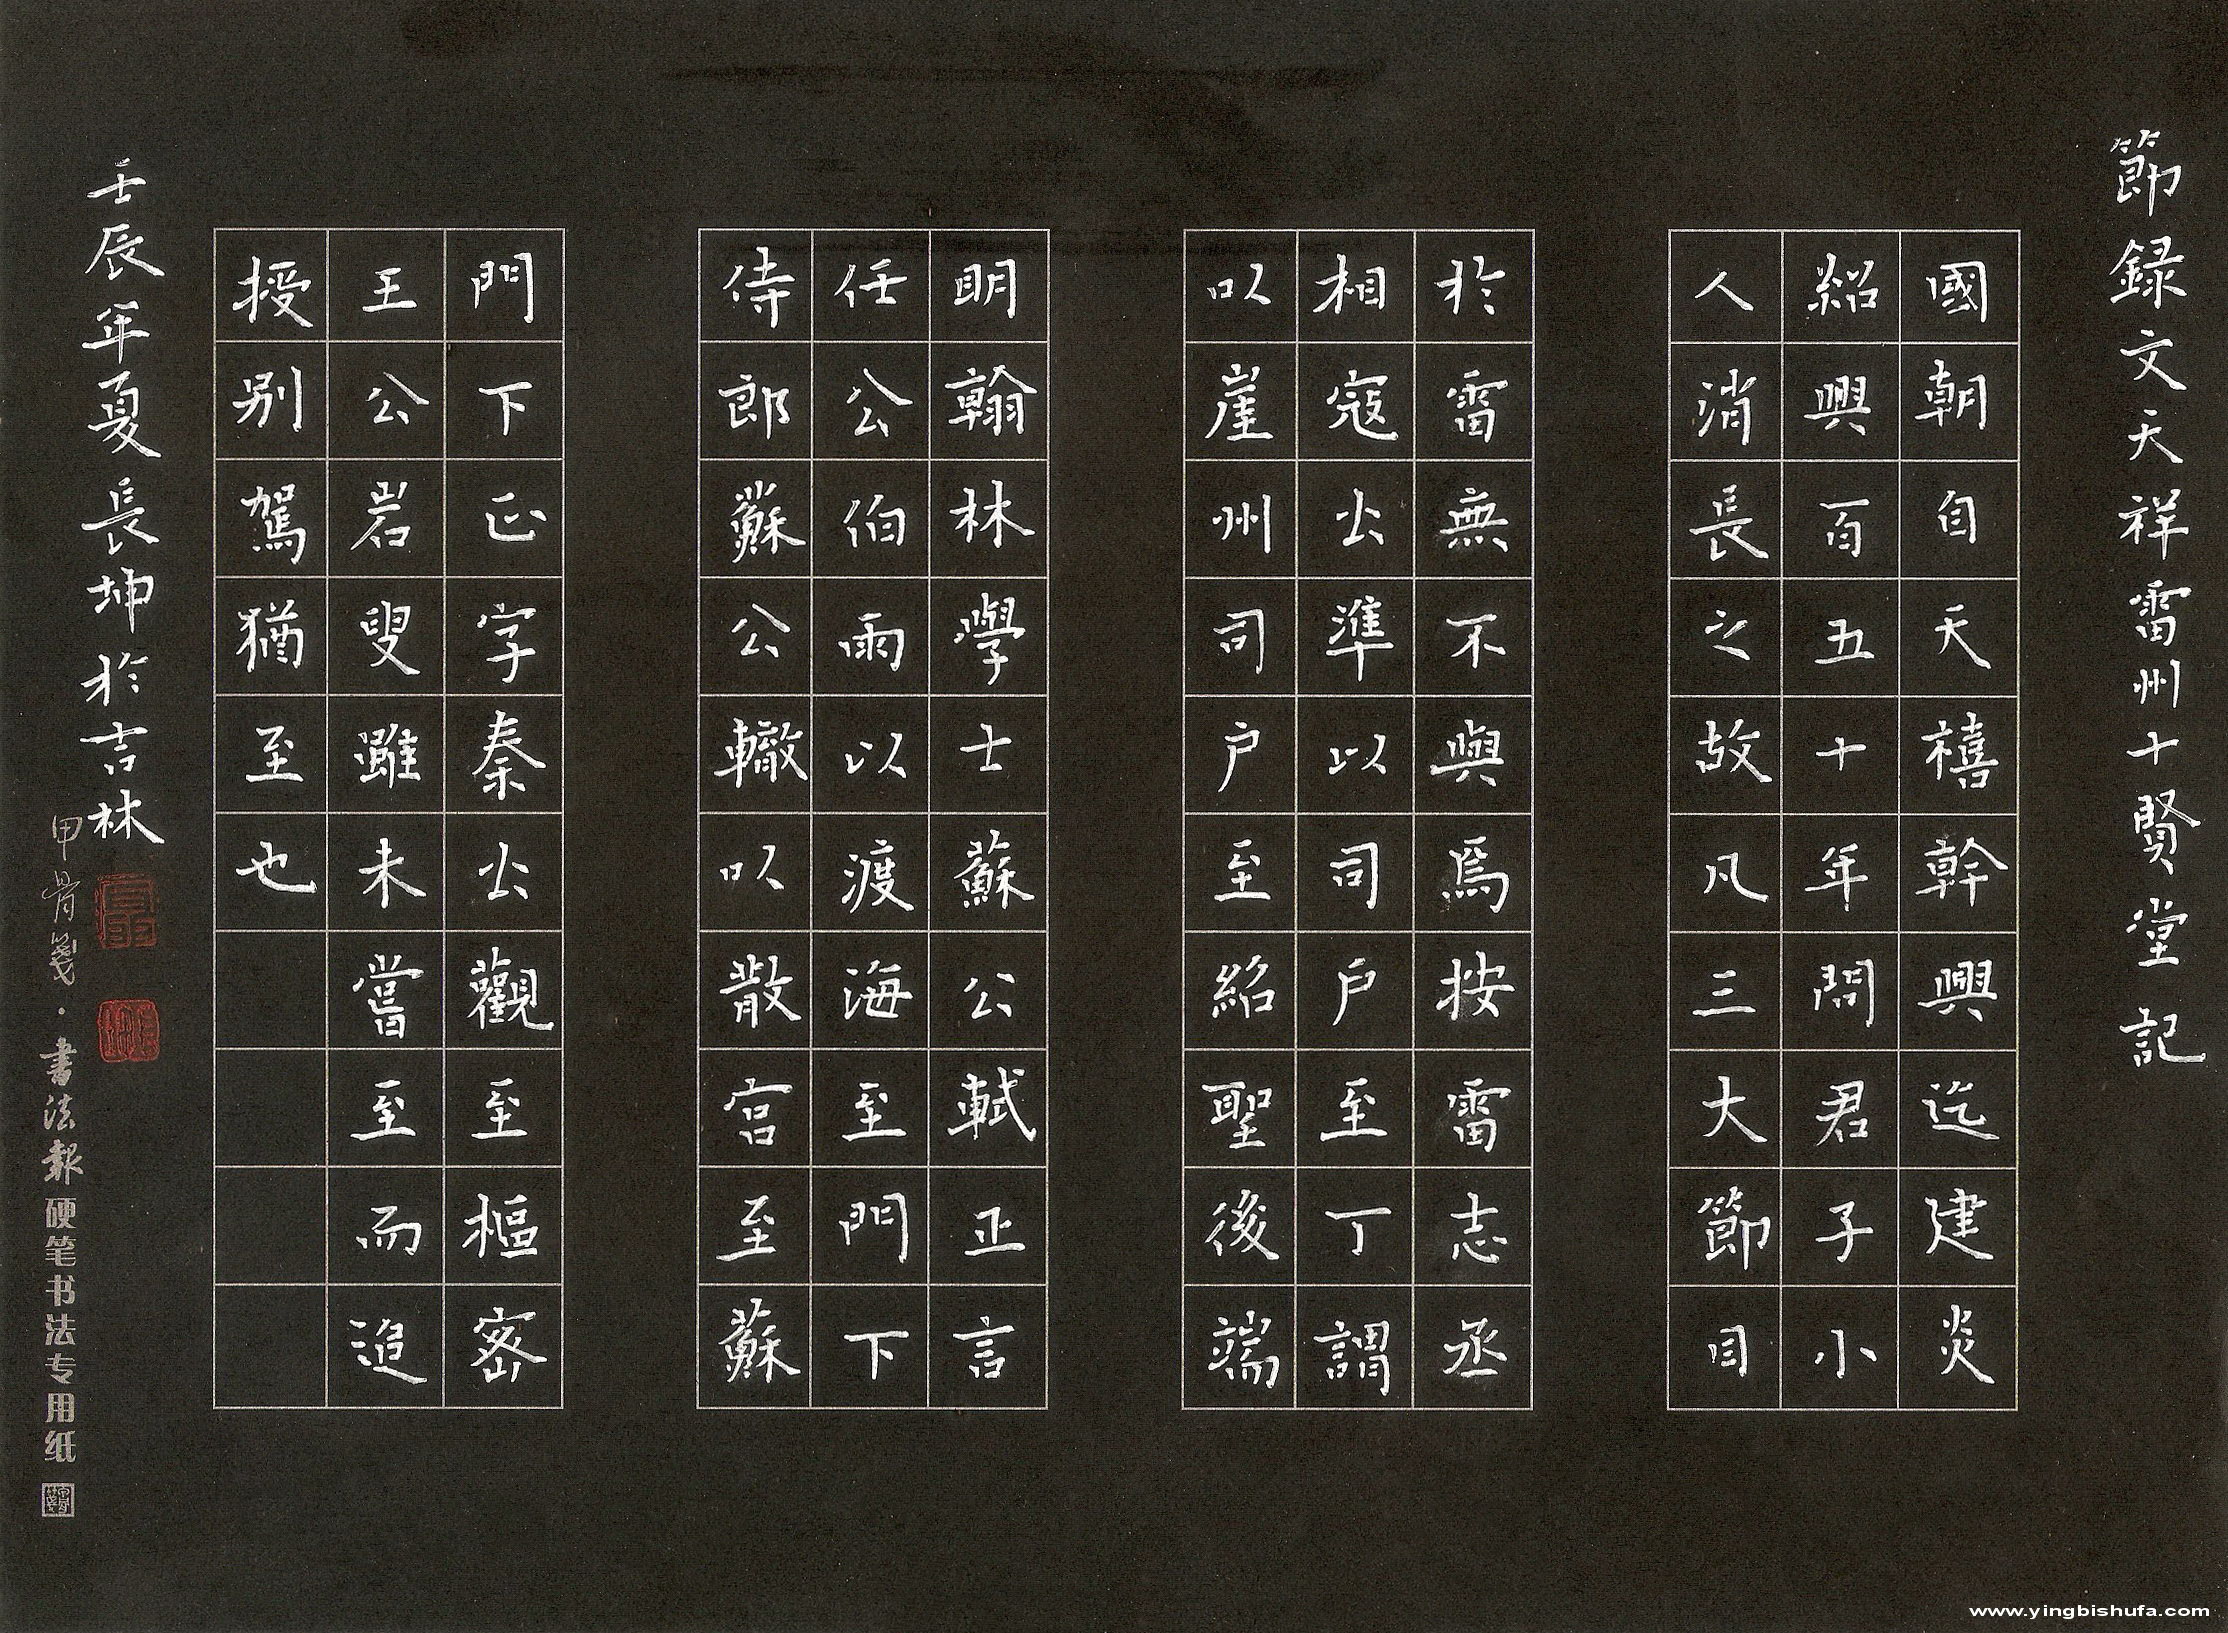 節録文天祥雷州十賢堂記
國朝自天禧幹興迄建炎
紹興百五十年問君子小
人消長之故凡三大節目
於雷無不與焉按雷志丞
相寇公準以司戶至丁謂
以崖州司戶至紹聖後端
明翰林學士蘇公軾正言
任公伯雨以渡海至門下
侍郎蘇公轍以散官至蘇
門下正字秦公觀至樞密
王公岩叟雖未嘗至而追
授别駕猶至也
壬辰年夏長坤於吉林
甲骨箋·書法報硬笔书法专用纸
www.yingbishufa.com